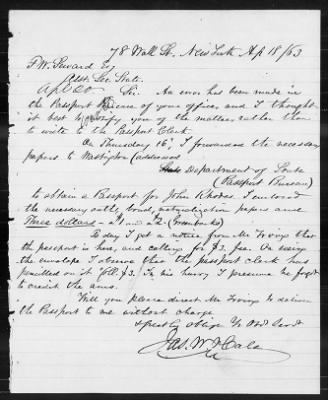 78 Wall St. New York Ap 18/63
F W. Seward Esq
Asst. Sec State.
Sir. An error has been made in
the Passport office of your offices, and I thought
it best to notify you of the matter rather than
to write to the Passport Clerk
On Thursday 16", I forwarded the necessary
papers to Washington (addressed
Department of State
(Passport Bureau)
to obtain a Passport for John Rhodes. I enclosed
the necessary oath, bond, naturalization papers and
Three dollars - a $1 and a $2 - (greenbacks)
To day I get a notice from Mr Irvings that
the passport is here, and calling for $3. fee. On seeing
the envelope I observe that the passport clerk has
pencilled on it "fee $3. In his hurry I presume he forgot
to credit the amt.
Will you please direct Mr Irvings to deliver
the Passport to me without charge
& greatly oblige Yr Obt Servt
Jas. W. Hale